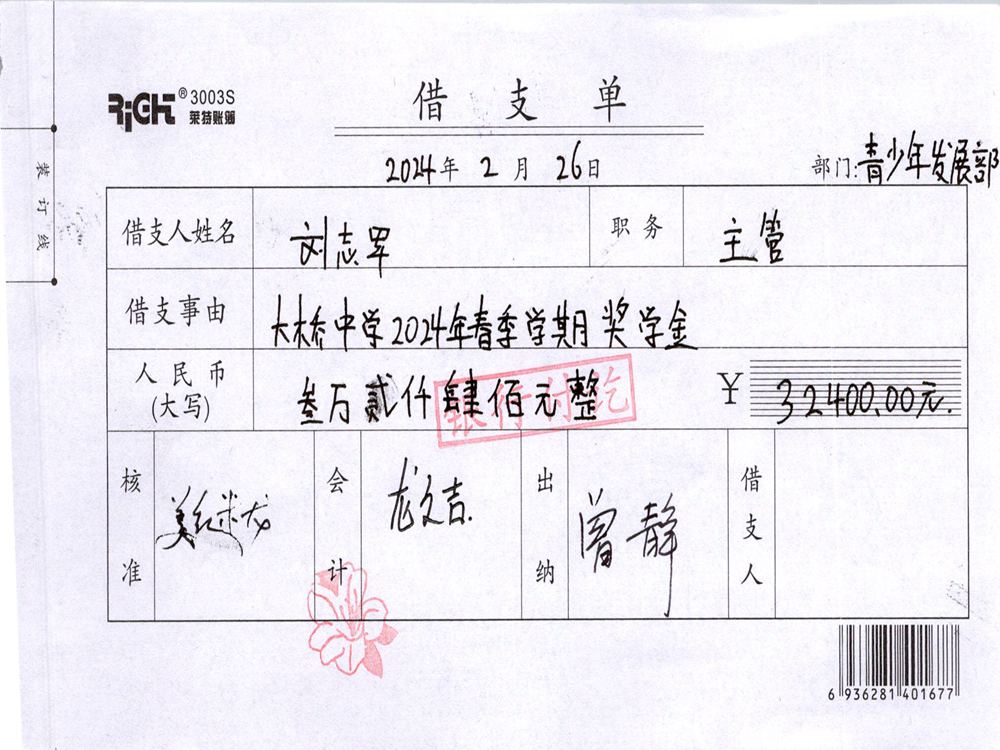 RiGHT® 3003S
莱特账簿
借支单
2024年2月26日
部门:青少年发展部
装订线
借支人姓名 刘志军 职务 主管
借支事由 大桥中学2024年春季学期奖学金
人民币(大写) 叁万贰仟肆佰元整 ¥32400.00元.
银行付讫
核准 会计 龙文吉. 出纳 曾静 借支人
6 936281 401677